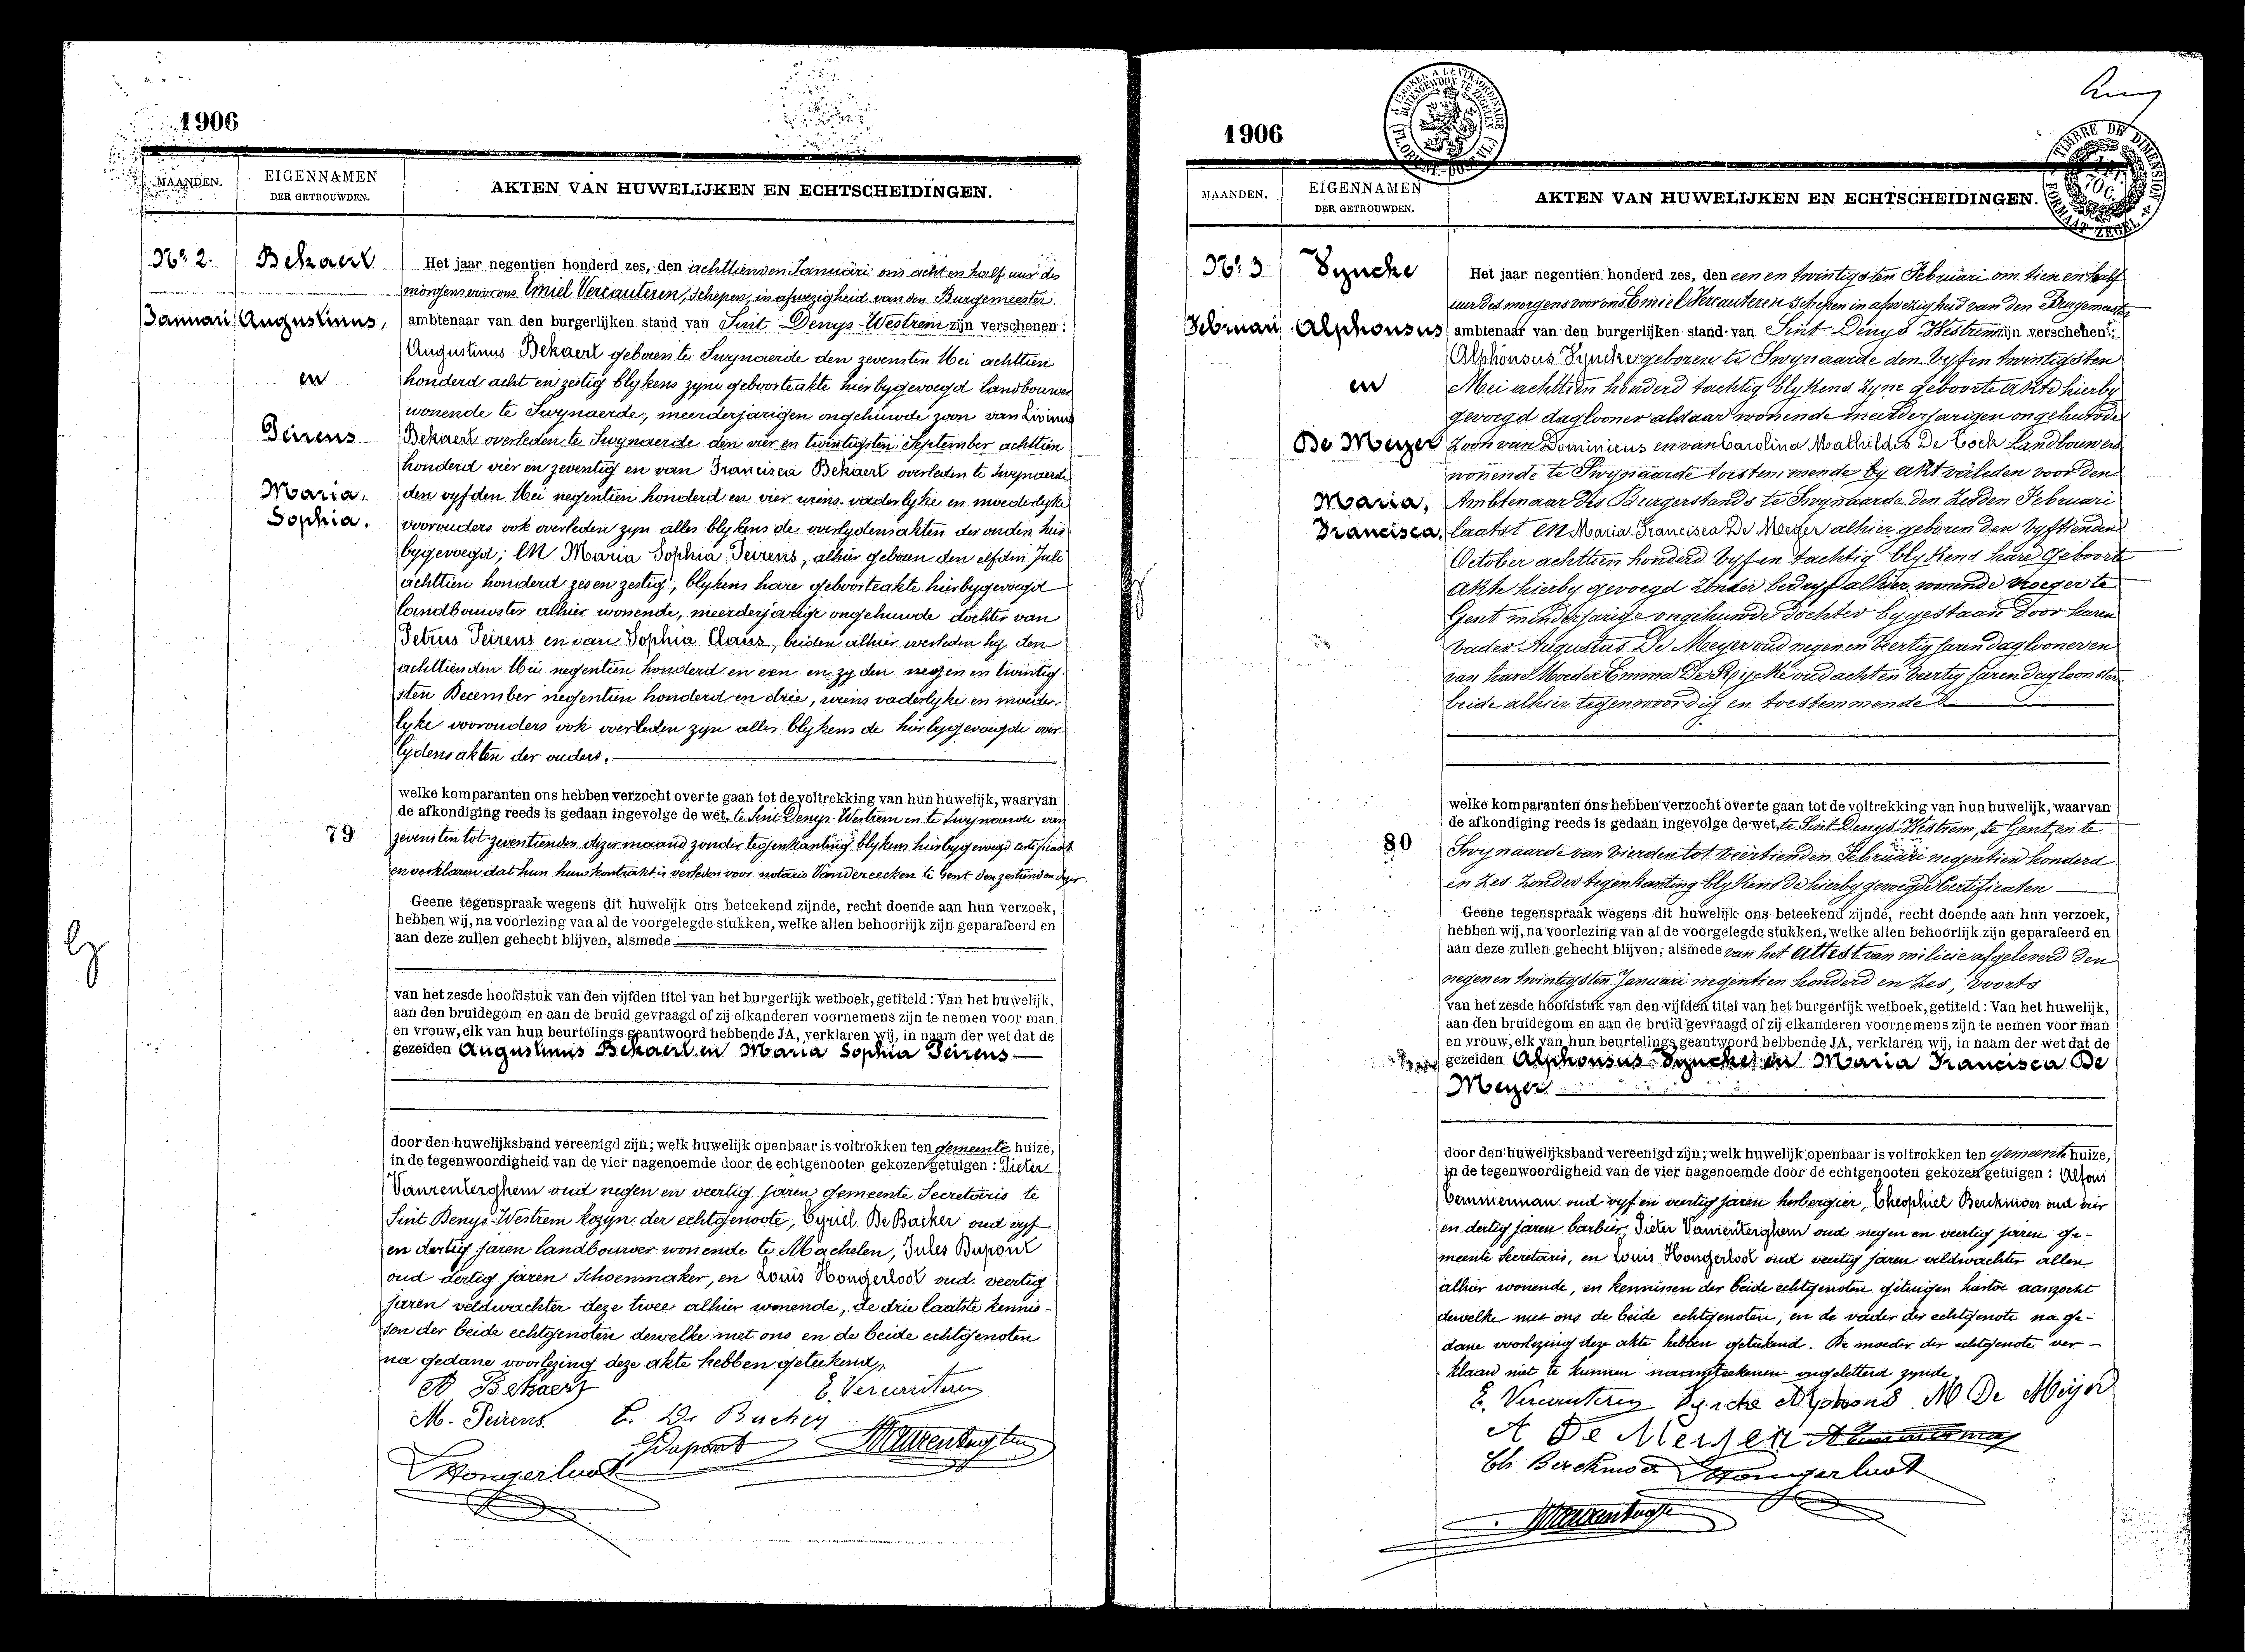 1906
MAANDEN.
EIGENNAMEN
DER GETROUWDEN.
AKTEN VAN HUWELIJKEN EN ECHTSCHEIDINGEN.
No. 2.
Januari
Bekaert
Augustinus,
en
Peirens
Maria,
Sophia.
Het jaar negentien honderd zes, den achttienden Januari om acht en half uur des
morgens voor ons Emiel Vercauteren, Schepen, in afwezigheid van den Burgemeester
ambtenaar van den burgerlijken stand van Sint Denys-Westrem zijn verschenen:
Augustinus Bekaert geboren te Swynaerde den zevensten Mei achttien
honderd acht en zestig blykens zyne geboorteakte hierbygevoegd landbouwer
wonende te Swynaerde, meerderjarigen ongehuwde zoon van Livinus
Bekaert overleden te Swynaerde den vier en twintigsten September achttien
honderd vier en zeventig en van Francisca Bekaert overleden te Swynaerde
den vyfden Mei negentien honderd en vier wiens vaderlyke en moederlyke
voorouders ook overleden zyn alles blykens de overlydensakten der ouden hier
bygevoegd; en Maria Sophia Peirens, alhier geboren den elfden Juli
achttien honderd zes en zestig, blykens hare geboorteakte hierbygevoegd
landbouwster alhier wonende, meerderjarige ongehuwde dochter van
Petrus Peirens en van Sophia Claus, beiden alhier overleden hy den
achttienden Mei negentien honderd en een en zy den negen en twintig-
sten December negentien honderd en drie, wiens vaderlyke en moeder-
lyke voorouders ook overleden zyn alles blykens de hierbygevoegde over-
lydensakten der ouders.
welke komparanten ons hebben verzocht over te gaan tot de voltrekking van hun huwelijk, waarvan
de afkondiging reeds is gedaan ingevolge de wet, te Sint Denys-Westrem en te Swynaerde van
79
zevensten tot zeventienden dezer maand zonder tegenkanting blykens hierbygevoegd certificaat
en verklaren dat hun huwkontrakt is verleden voor notaris Vandereecken te Gent den zestienden dezer.
Geene tegenspraak wegens dit huwelijk ons beteekend zijnde, recht doende aan hun verzoek,
hebben wij, na voorlezing van al de voorgelegde stukken, welke allen behoorlijk zijn geparafeerd en
aan deze zullen gehecht blijven, alsmede
van het zesde hoofdstuk van den vijfden titel van het burgerlijk wetboek, getiteld: Van het huwelijk,
aan den bruidegom en aan de bruid gevraagd of zij elkanderen voornemens zijn te nemen voor man
en vrouw, elk van hun beurtelings geantwoord hebbende JA, verklaren wij, in naam der wet dat de
gezeiden Augustinus Bekaert en Maria Sophia Peirens
door den huwelijksband vereenigd zijn; welk huwelijk openbaar is voltrokken ten gemeente huize,
in de tegenwoordigheid van de vier nagenoemde door de echtgenooten gekozen getuigen: Pieter
Vanrenterghem oud negen en veertig jaren gemeente Secretaris te
Sint Denys-Westrem kozyn der echtgenoote, Cyriel De Backer oud vyf
en dertig jaren landbouwer wonende te Machelen, Jules Dupont
oud dertig jaren Schoenmaker, en Louis Hongerloot oud veertig
jaren veldwachter deze twee alhier wonende, de drie laatste kennis-
sen der beide echtgenoten dewelke met ons en de beide echtgenoten
na gedane voorlezing deze akte hebben geteekend.
A Bekaert
E. Vercauteren
M. Peirens
C. De Backer
JDupont
PVanrenterghem
LHongerloot
1906
MAANDEN.
EIGENNAMEN
DER GETROUWDEN.
AKTEN VAN HUWELIJKEN EN ECHTSCHEIDINGEN.
TIMBRE DE DIMENSION
FORMAAT ZEGEL
No. 3
Februari
Syncke
Alphonsus
en
De Meyer
Maria,
Francisca.
Het jaar negentien honderd zes, den een en twintigsten Februari om tien en half
uur des morgens voor ons Emiel Vercauteren Schepen in afwezigheid van den Burgemeester
ambtenaar van den burgerlijken stand van Sint Denys Westrem zijn verschenen:
Alphonsus Syncke geboren te Swynaarde den vyf en twintigsten
Mei achttien honderd tachtig blykens zyne geboorte akte hierby
gevoegd daglooner aldaar wonende meerderjarigen ongehuwde
Zoon van Dominicus en van Carolina Mathildis De Cock Landbouwers
wonende te Swynaarde toestemmende by akt verleden voor den
Ambtenaar des Burgerstands te Swynaarde den zesden Februari
laatst en Maria Francisca De Meyer alhier geboren den vyftienden
October achttien honderd vyf en tachtig blykens hare geboorte
akte hierby gevoegd zonder bedryf alhier wonende vroeger te
Gent minderjarige ongehuwde dochter bygestaan door haren
vader Augustus De Meyer oud negen en veertig jaren daglooner en
van hare Moeder Emma De Rycke oud acht en veertig jaren dagloonster
beide alhier tegenwoordig en toestemmende
welke komparanten ons hebben verzocht over te gaan tot de voltrekking van hun huwelijk, waarvan
de afkondiging reeds is gedaan ingevolge de wet, te Sint Denys Westrem, te Gent en te
80
Swynaarde van vierden tot veertienden Februari negentien honderd
en zes zonder tegenkanting blykens de hierby gevoegde Certificaten
Geene tegenspraak wegens dit huwelijk ons beteekend zijnde, recht doende aan hun verzoek,
hebben wij, na voorlezing van al de voorgelegde stukken, welke allen behoorlijk zijn geparafeerd en
aan deze zullen gehecht blijven, alsmede van het Attest van milicie afgeleverd den
negen en twintigsten Januari negentien honderd en zes, voorts
van het zesde hoofdstuk van den vijfden titel van het burgerlijk wetboek, getiteld: Van het huwelijk,
aan den bruidegom en aan de bruid gevraagd of zij elkanderen voornemens zijn te nemen voor man
en vrouw, elk van hun beurtelings geantwoord hebbende JA, verklaren wij, in naam der wet dat de
gezeiden Alphonsus Syncke en Maria Francisca De
Meyer
door den huwelijksband vereenigd zijn; welk huwelijk openbaar is voltrokken ten gemeente huize,
in de tegenwoordigheid van de vier nagenoemde door de echtgenooten gekozen getuigen: Alfons
Temmerman oud vyf en veertig jaren herbergier, Theophiel Berckmoes oud vier
en dertig jaren barbier, Pieter Vanrenterghem oud negen en veertig jaren ge-
meente Secretaris, en Louis Hongerloot oud veertig jaren veldwachter allen
alhier wonende, en kennissen der beide echtgenoten getuigen hiertoe aanzocht
dewelke met ons de beide echtgenoten, en de vader der echtgenote na ge-
dane voorlezing deze akte hebben geteekend. De moeder der echtgenote ver-
klaard niet te kunnen naamteekenen ongeletterd zynde
E. Vercauteren Syncke Alphons M De Meyer
A De Meyer ATemmerman
Th Berckmoes LHongerloot
PVanrenterghem